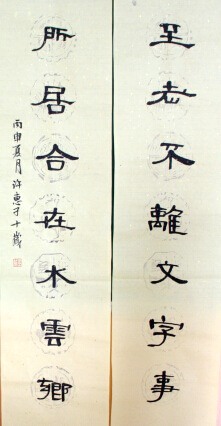 至老不離文字事
所居合在水雲鄉
丙申夏月許惠子十歲